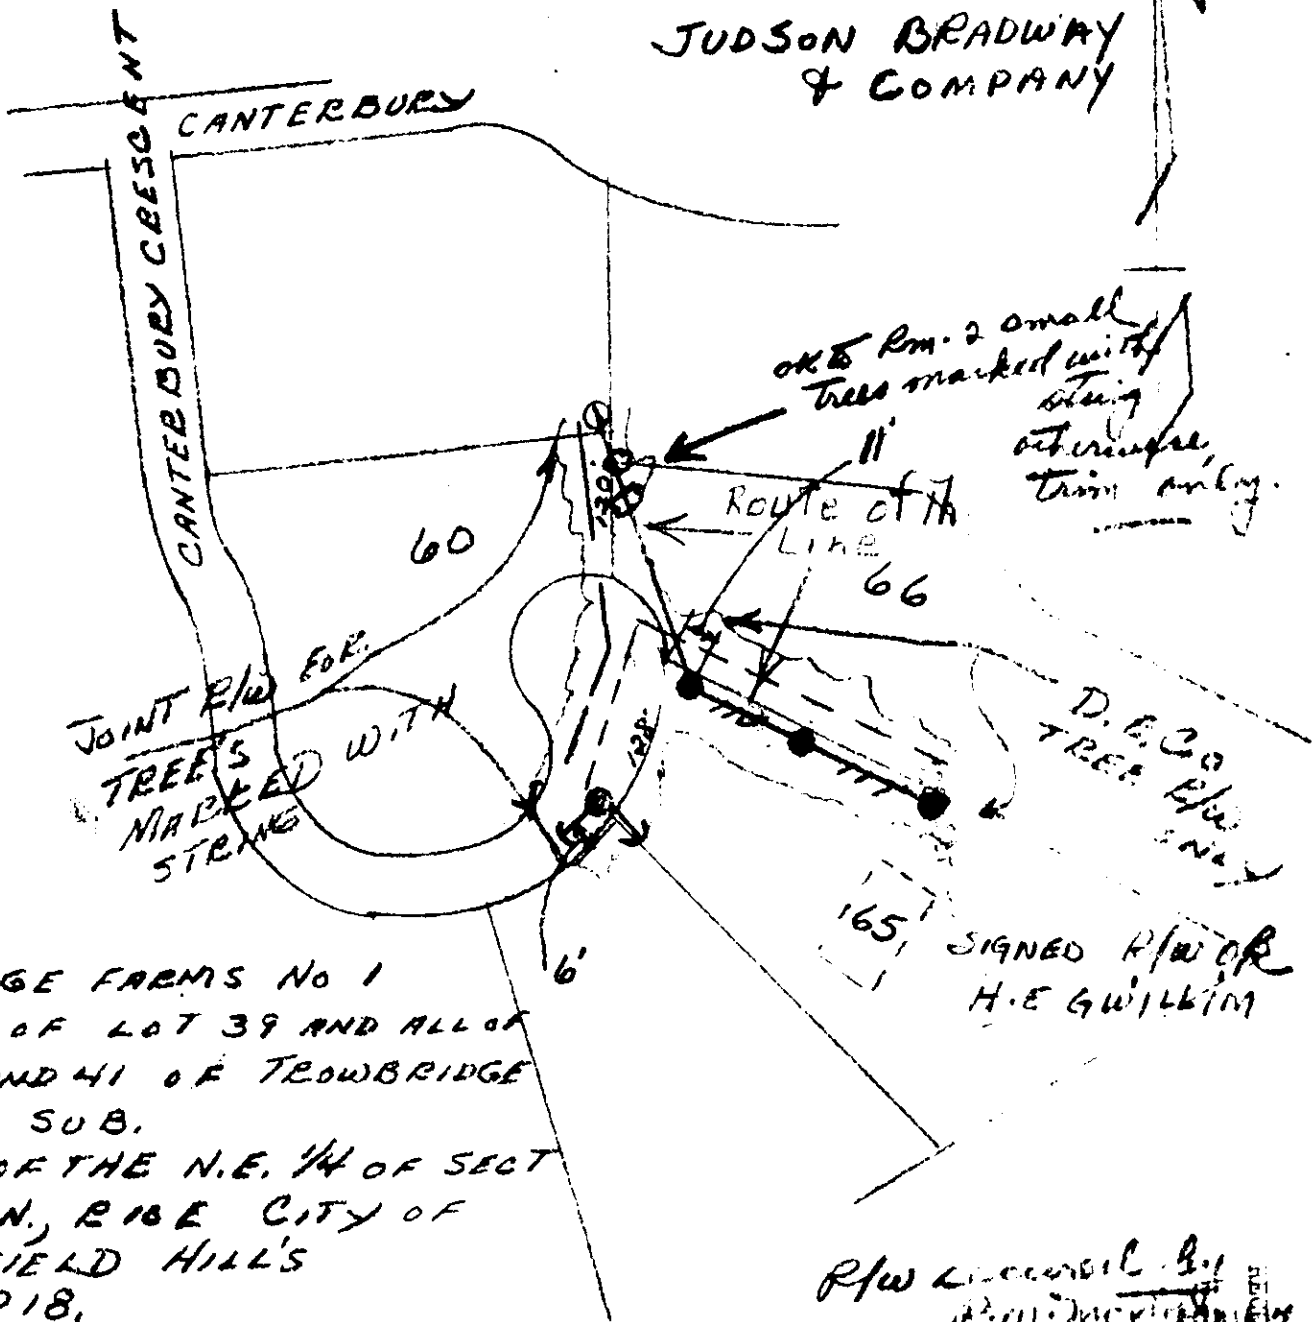 JUDSON BRADWAY
& COMPANY
CANTERBURY
CANTERBURY CRESCENT
OK to Rm. 2 small
Trees marked with
string
otherwise,
Trim only.
11'
130'
Route of
Line
60
66
JOINT R/W FOR
TREE'S
MARKED WITH
STRING
128'
D.E.Co
TREE R/W
ONLY
165
SIGNED R/W OR
H.E GWILLIM
6'
GE FARMS No 1
OF LOT 39 AND ALL OF
ND 41 OF TROWBRIDGE
SUB.
OF THE N.E. 1/4 OF SECT
N., R10E CITY OF
IELD HILL'S
P 18.
R/W secured by